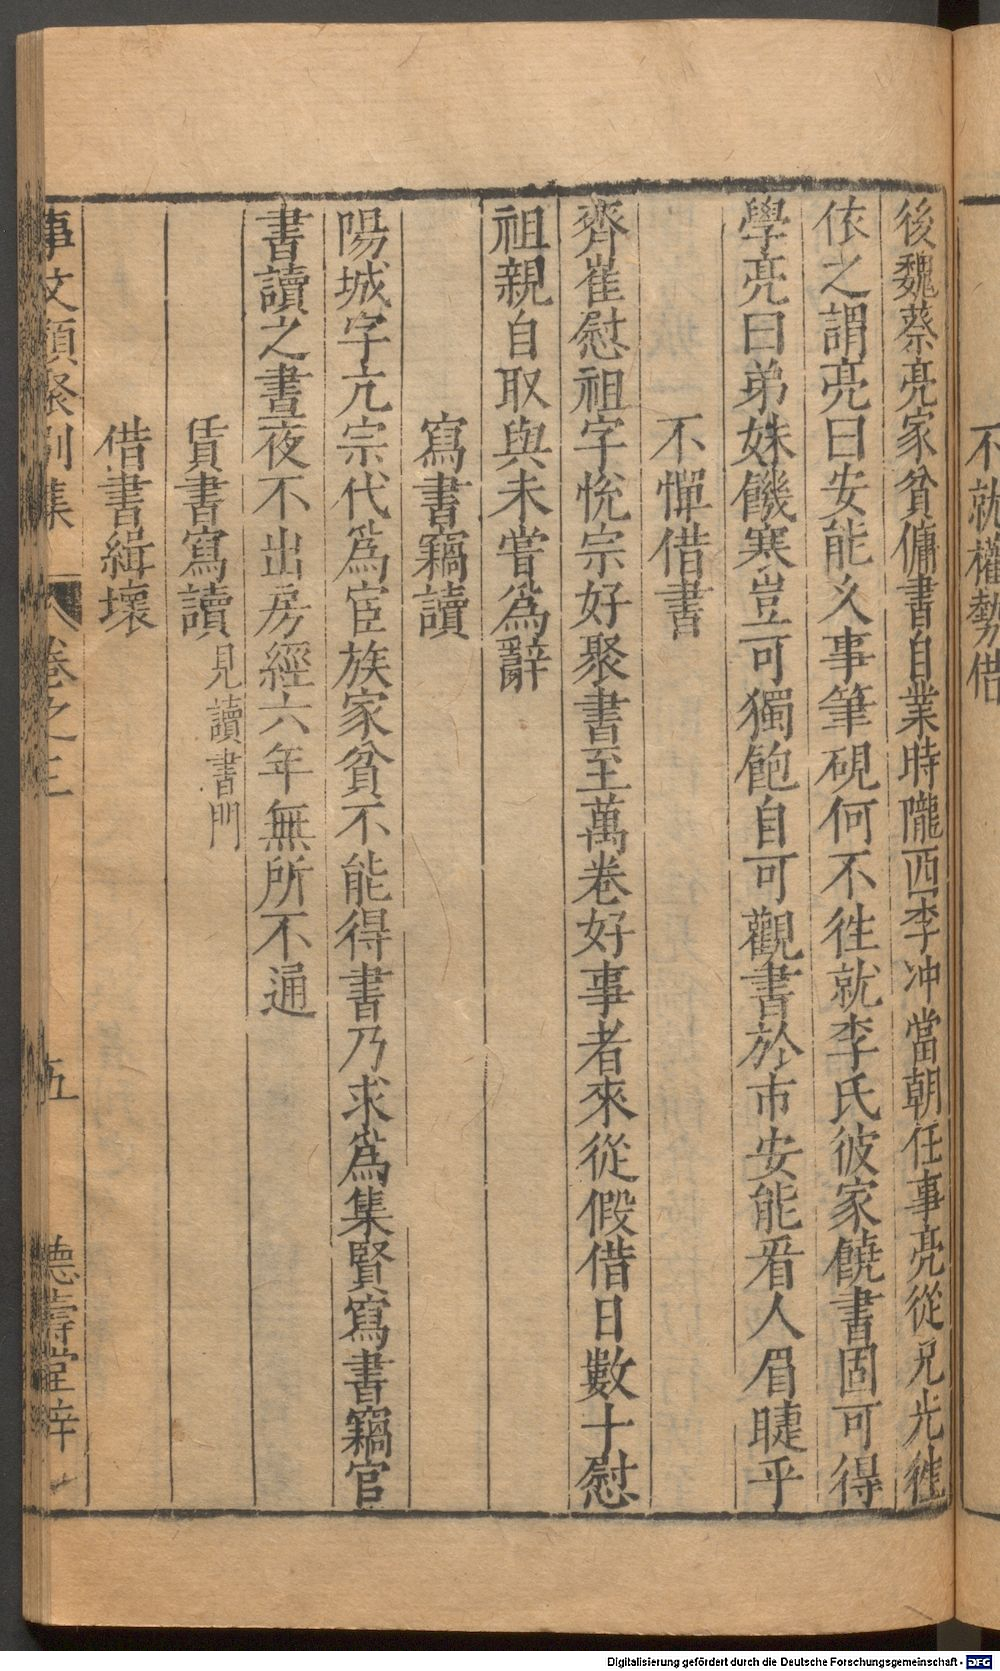 不就權勢借
後魏蔡亮家貧傭書自業時隴西李冲當朝任事亮從兄光徃
依之謂亮曰安能久事筆硯何不徃就李氏彼家饒書固可得
學亮曰弟妹饑寒豈可獨飽自可觀書於市安能看人眉睫乎
不憚借書
齊崔慰祖字恱宗好聚書至萬卷好事者來從假借日數十慰
祖親自取與未嘗為辭
寫書竊讀
陽城字亢宗代為宦族家貧不能得書乃求為集賢寫書竊官
書讀之晝夜不出房經六年無所不通
賃書寫讀 見讀書門
借書緝壞
事文類聚別集 卷之三 五 德壽堂梓
Digitalisierung gefördert durch die Deutsche Forschungsgemeinschaft - DFG